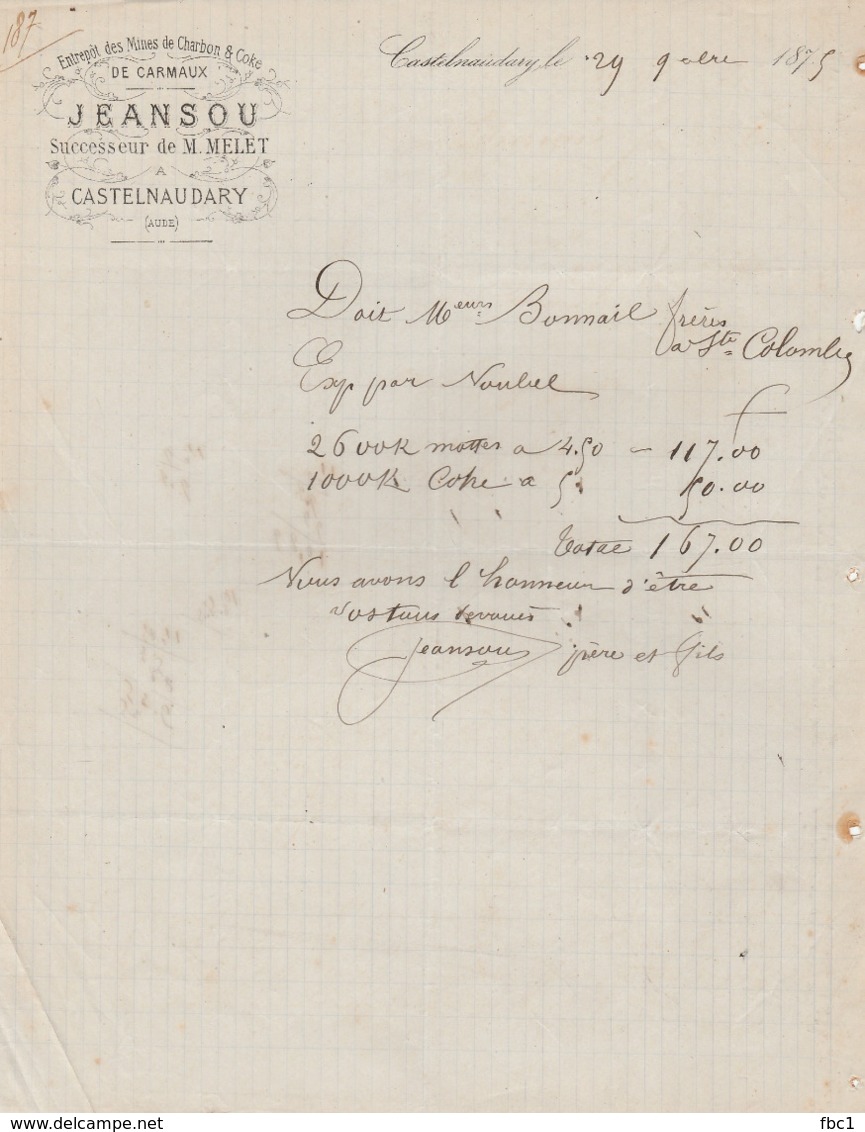 187
Entrepôt des Mines de Charbon & Coke
DE CARMAUX
JEANSOU
Successeur de M. MELET
A
CASTELNAUDARY
(AUDE)
Castelnaudary, le 29 9bre 1875
Doit Meurs Bonnail frères
a Ste Colombe
Exp par Noubel
f
2600K mottes a 4.50 – 117.00
1000K Coke a 5. 50.00
Total 167.00
Nous avons l'honneur d'être
vos tous devoués
Jeansou père et fils
delcampe.net
fbc1